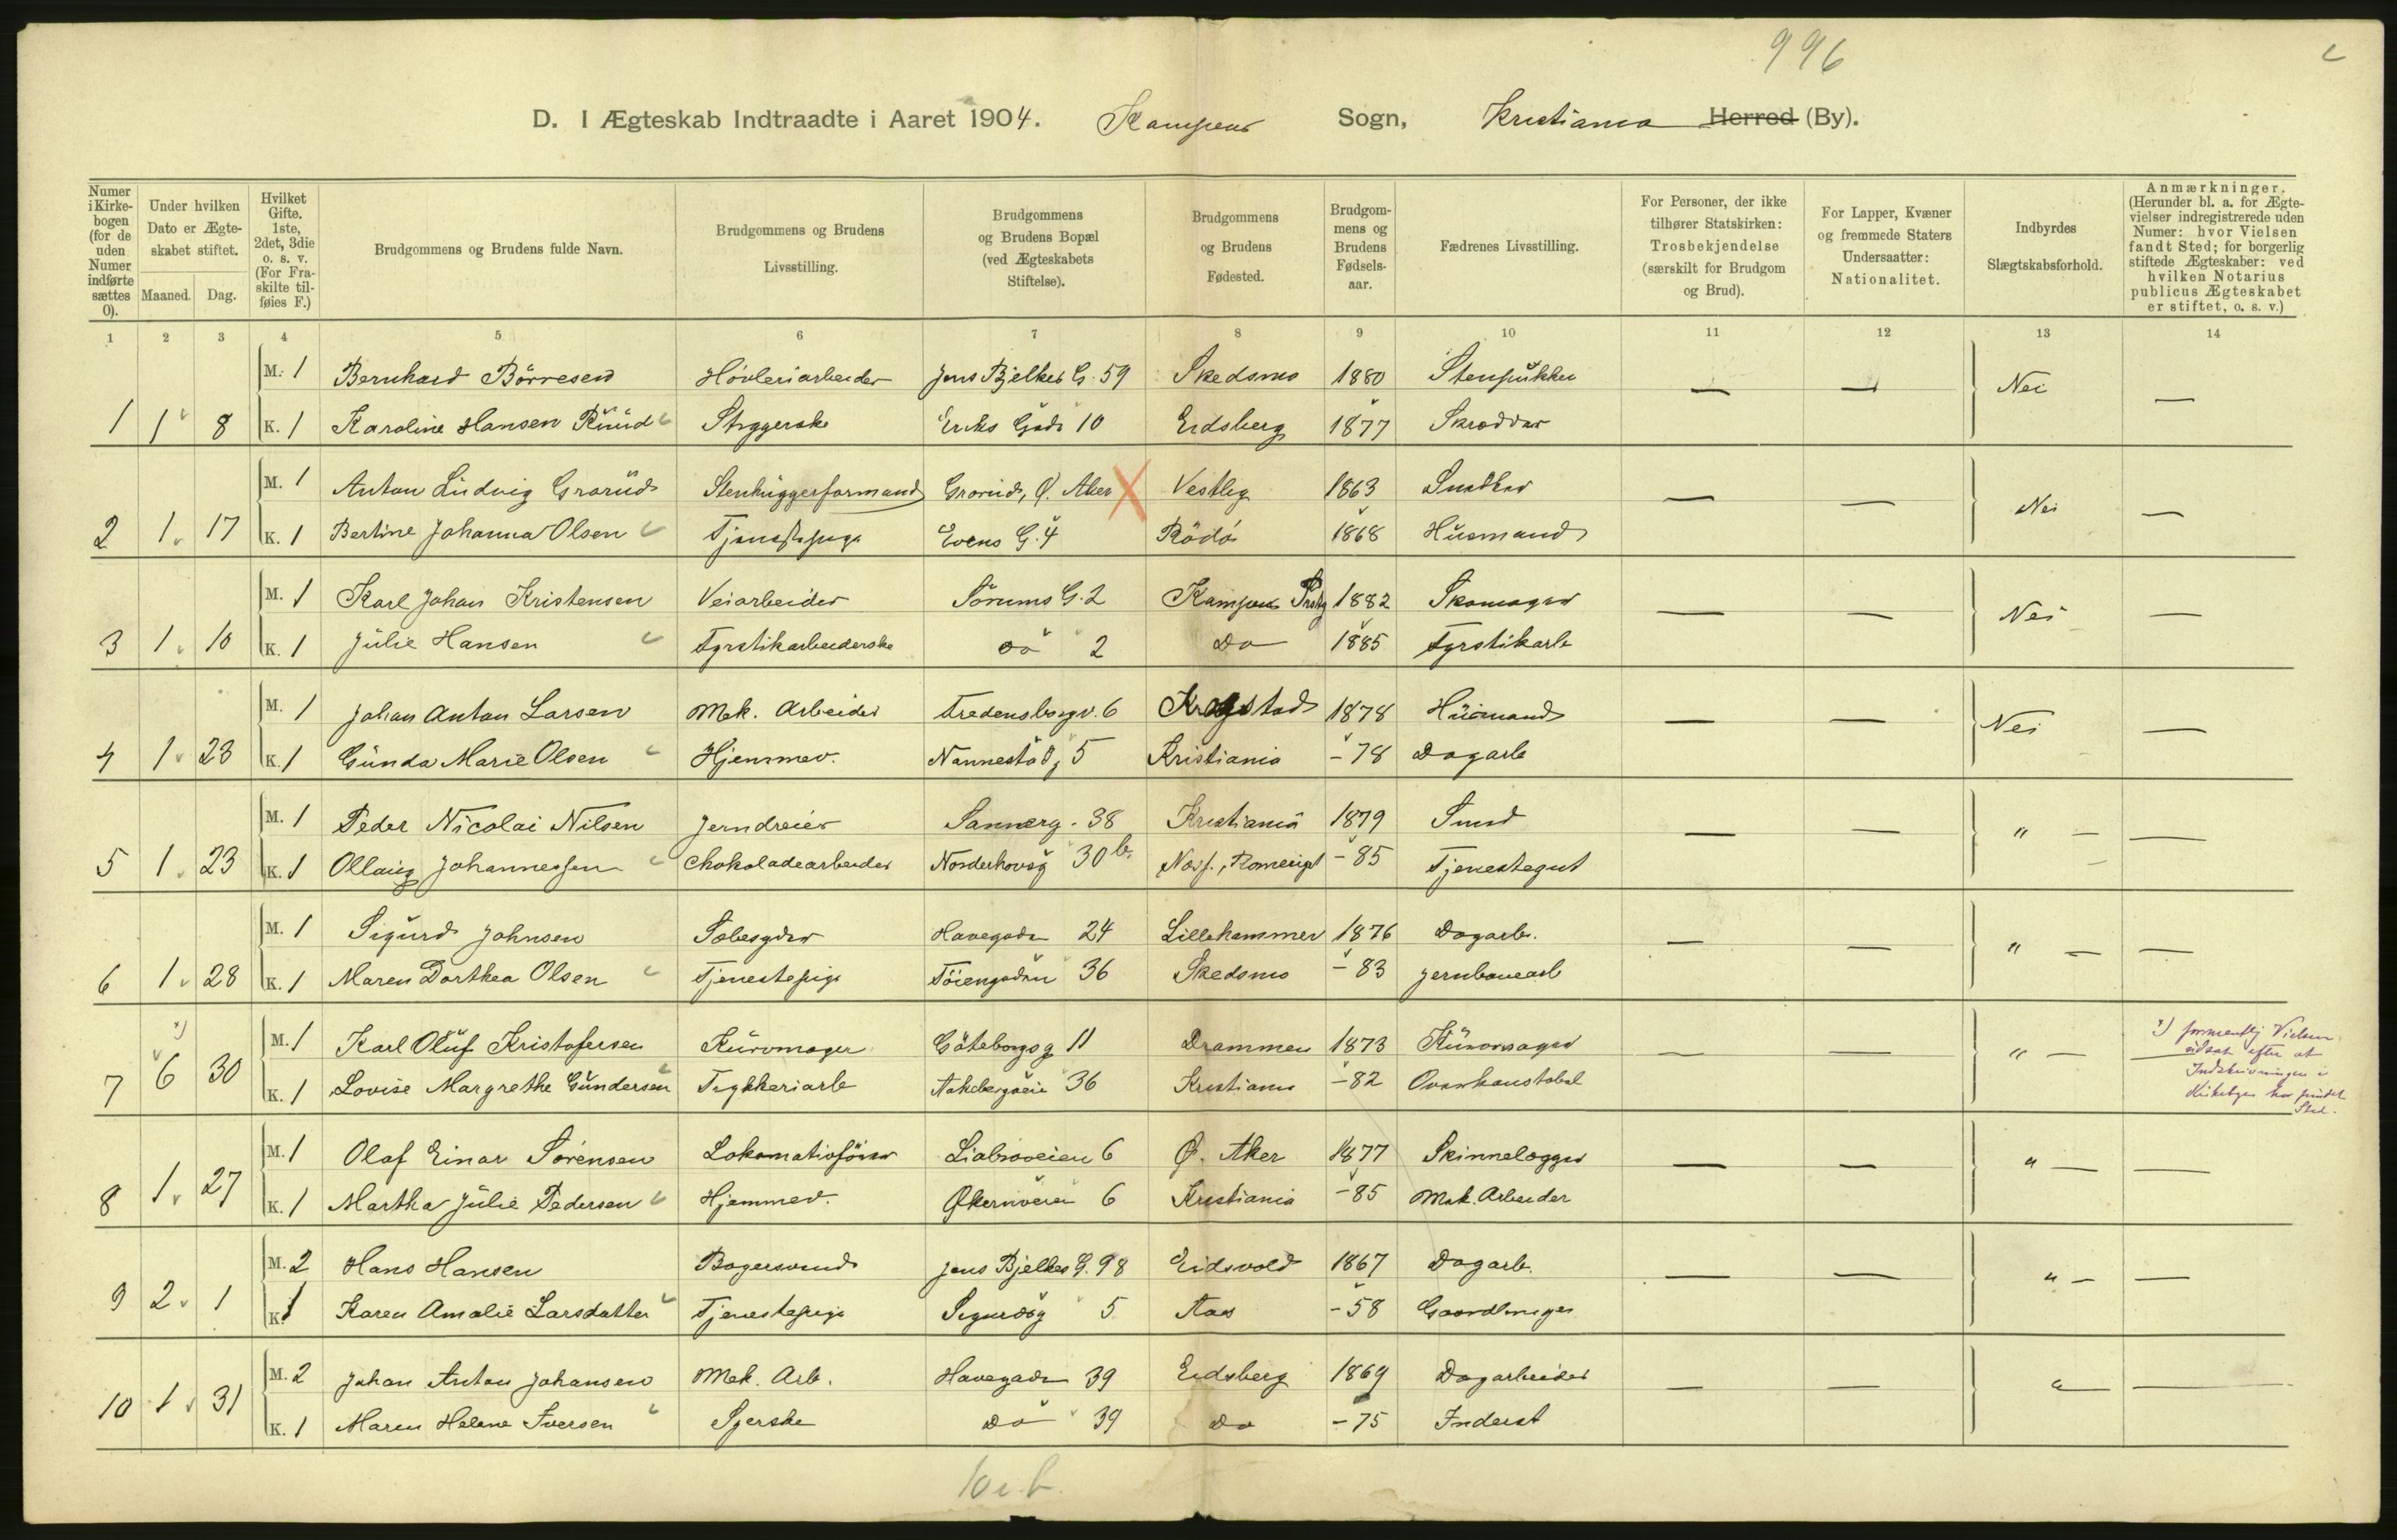 996
D. I Ægteskab Indtraadte i Aaret 1904. Kampens Sogn, Kristiania Herred (By).
Numer i Kirkebogen (for de uden Numer indførte sættes 0).
Under hvilken Dato er Ægteskabet stiftet.
Maaned. Dag.
Hvilket Gifte. 1ste, 2det, 3die o. s. v. (For Fraskilte tilføies F.)
Brudgommens og Brudens fulde Navn.
Brudgommens og Brudens Livsstilling.
Brudgommens og Brudens Bopæl (ved Ægteskabets Stiftelse).
Brudgommens og Brudens Fødested.
Brudgommens og Brudens Fødselsaar.
Fædrenes Livsstilling.
For Personer, der ikke tilhører Statskirken: Trosbekjendelse (særskilt for Brudgom og Brud).
For Lapper, Kvæner og fremmede Staters Undersaatter: Nationalitet.
Indbyrdes Slægtskabsforhold.
Anmærkninger. (Herunder bl. a. for Ægtevielser indregistrerede uden Numer: hvor Vielsen fandt Sted; for borgerlig stiftede Ægteskaber: ved hvilken Notarius publicus Ægteskabet er stiftet, o. s. v.)
1 2 3 4 5 6 7 8 9 10 11 12 13 14
M. 1 Bernhard Börresen Høvleriarbeider Jens Bjelkes G. 59 Skedsmo 1880 Stenpukker — — Nei —
1 1 8 K. 1 Karoline Hansen Ruud Strygerske Eriks Gade 10 Eidsberg 1877 Skrædder
M. 1 Anton Ludvig Grorud Stenhuggerformand Grorud, Ø. Aker Vestby 1863 Snedker — — Nei —
2 1 17 K. 1 Bertine Johanna Olsen Tjenestepige Evens G. 4 Rödö 1868 Husmand
M. 1 Karl Johan Kristensen Veiarbeider Sörums G. 2 Kampens Prstg 1882 Skomager — — Nei —
3 1 10 K. 1 Julie Hansen Fyrstikarbeiderske do 2 Do 1885 Fyrstikarb
M. 1 Johan Anton Larsen Mek. Arbeider Fredensborgv. 6 Krogstad 1878 Husmand — — Nei —
4 1 23 K. 1 Gunda Marie Olsen Hjemmev. Nannestadg 5 Kristiania - 78 Dagarb
M. 1 Peder Nicolai Nilsen Jerndreier Sannerg. 38 Kristiania 1879 Smed — — " — —
5 1 23 K. 1 Ollaug Johannessen Chokoladearbeider Norderhovsg 30 b. Næs, Romerige - 85 Tjenestegut
M. 1 Sigurd Johnsen Sæbesyder Havegaden 24 Lillehammer 1876 Dagarb. — — " — —
6 1 28 K. 1 Maren Dorthea Olsen Tjenestepige Töiengaden 36 Skedsmo - 83 Jernbanearb
M. 1 Karl Oluf Kristofersen Kurvmager Göteborgsg 11 Drammen 1873 Kurvmager — — " —
7 6 30 K. 1 Lovise Margrethe Gundersen Trykkeriarb Aakebergveie 36 Kristiania - 82 Overkonstabel
x) formentlig Vielsen
sidst efter at
Indskrivningen i
Kirkebogen har fundet
Sted.
M. 1 Olaf Einar Sörensen Lokomotivförer Liabroveien 6 Ø. Aker 1877 Skinnelægger — — " — —
8 1 27 K. 1 Martha Julie Pedersen Hjemmev. Økernveien 6 Kristiania - 85 Mek. Arbeider
M. 2 Hans Hansen Bagersvend Jens Bjelkes G. 98 Eidsvold 1867 Dagarb. — — " — —
9 2 1 K. 1 Karen Amalie Larsdatter Tjenestepige Sigurdsg 5 Aas - 58 Gaardbruger
M. 2 Johan Anton Johansen Mek. Arb. Havegaden 39 Eidsberg 1869 Dagarbeider — — " —
10 1 31 K. 1 Maren Helene Iversen Syerske Do 39 Do - 75 Inderst